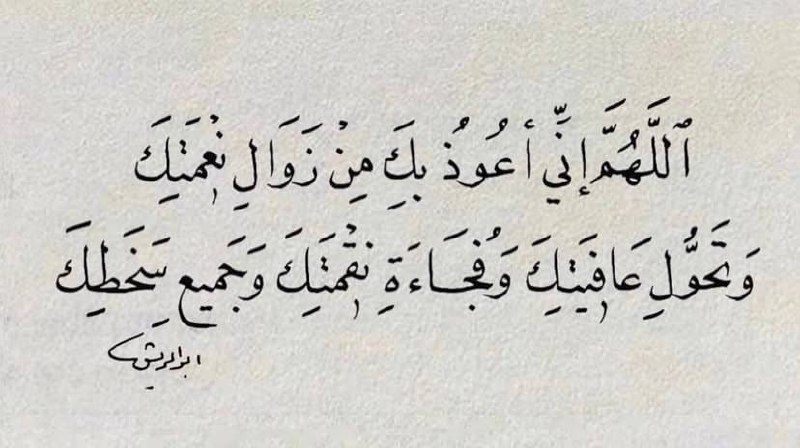 ٱللَّهُمَّ إِنِّي أَعُوذُ بِكَ مِنْ زَوَالِ نِعْمَتِكَ
وَتَحَوُّلِ عَافِيَتِكَ وَفُجَاءَةِ نِقْمَتِكَ وَجَمِيعِ سَخَطِكَ